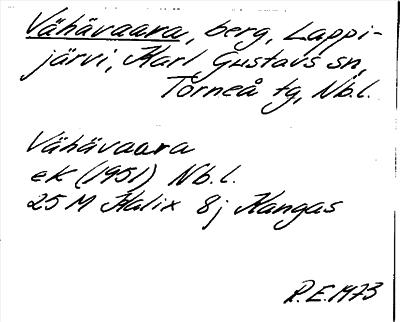 Vähävaara, berg, Lappi-
järvi, Karl Gustavs sn,
Torneå tg, Nb.l.
Vähävaara
ek (1951) Nb.l.
25 M Kalix 8j Kangas
R.E. 1973